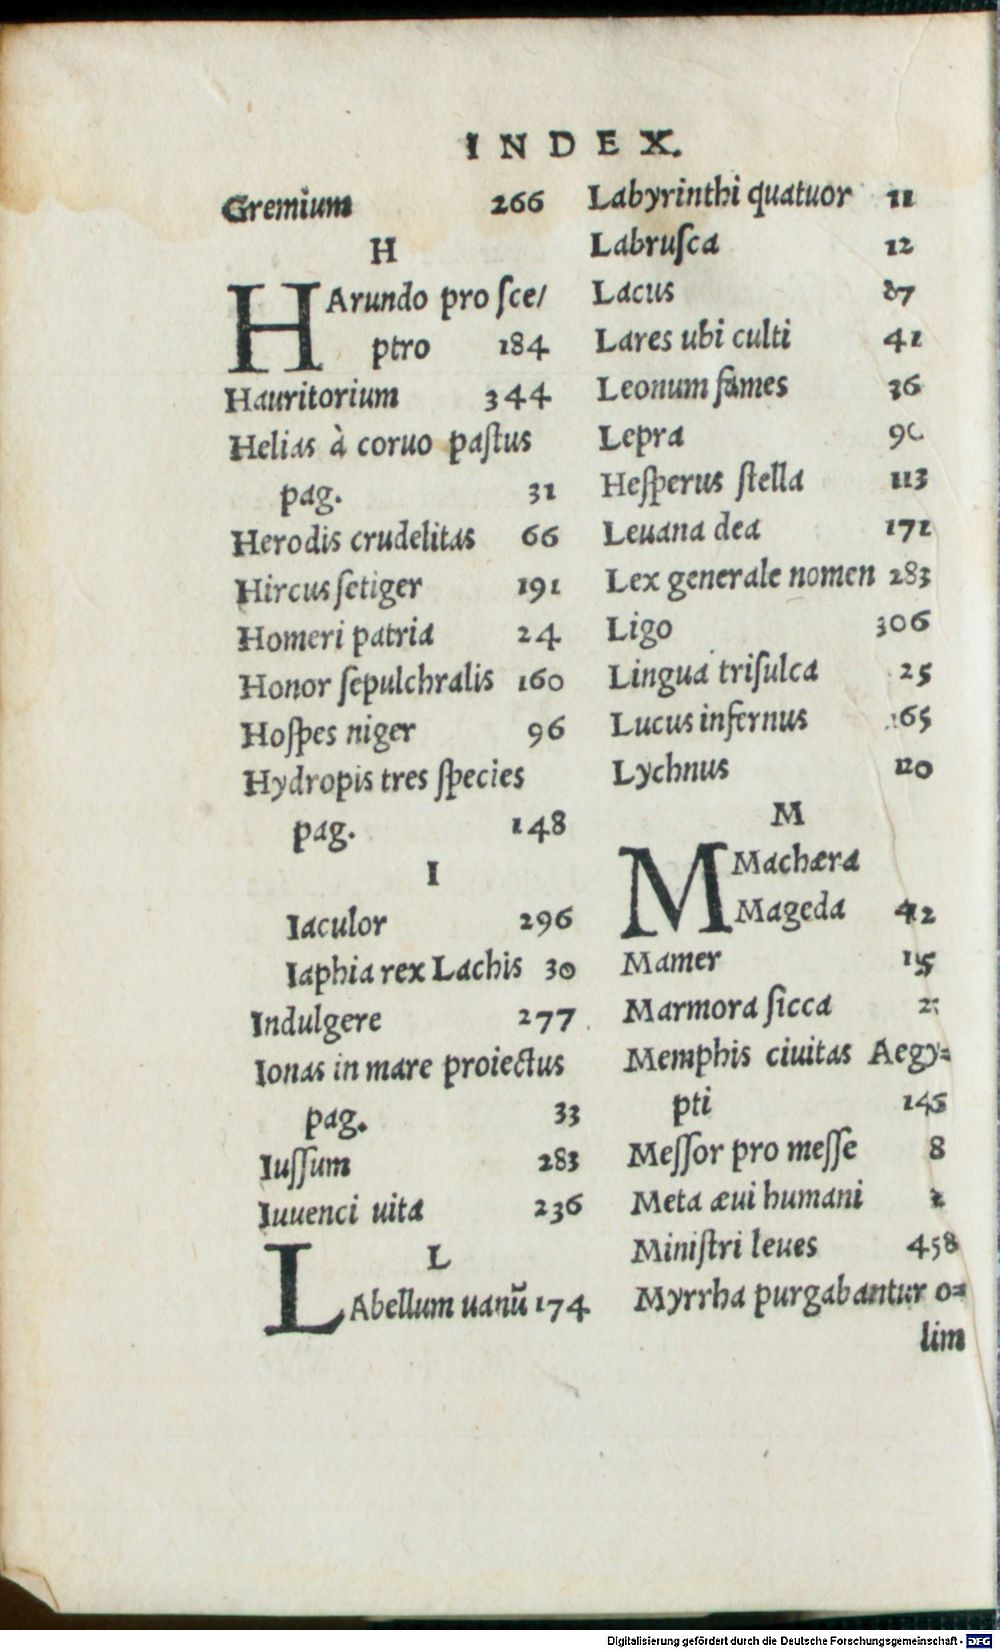 INDEX.
Gremium 266
H
HArundo pro ſce/
ptro 184
Hauritorium 344
Helias à coruo paſtus
pag. 31
Herodis crudelitas 66
Hircus ſetiger 191
Homeri patria 24
Honor ſepulchralis 160
Hoſpes niger 96
Hydropis tres ſpecies
pag. 148
I
Iaculor 296
Iaphia rex Lachis 30
Indulgere 277
Ionas in mare proiectus
pag. 33
Iuſſum 283
Iuuenci uita 236
L
LAbellum uanũ 174
Labyrinthi quatuor 11
Labruſca 12
Lacus 87
Lares ubi culti 41
Leonum fames 36
Lepra
Heſperus ſtella 113
Leuana dea 171
Lex generale nomen 283
Ligo 306
Lingua triſulca 25
Lucus infernus 165
Lychnus 120
M
MMachæra
Mageda 42
Mamer 15
Marmora ſicca
Memphis ciuitas Aegy=
pti 145
Meſſor pro meſſe 8
Meta æui humani 2
Miniſtri leues 458
Myrrha purgabantur o=
lim
Digitalisierung gefördert durch die Deutsche Forschungsgemeinschaft - DFG